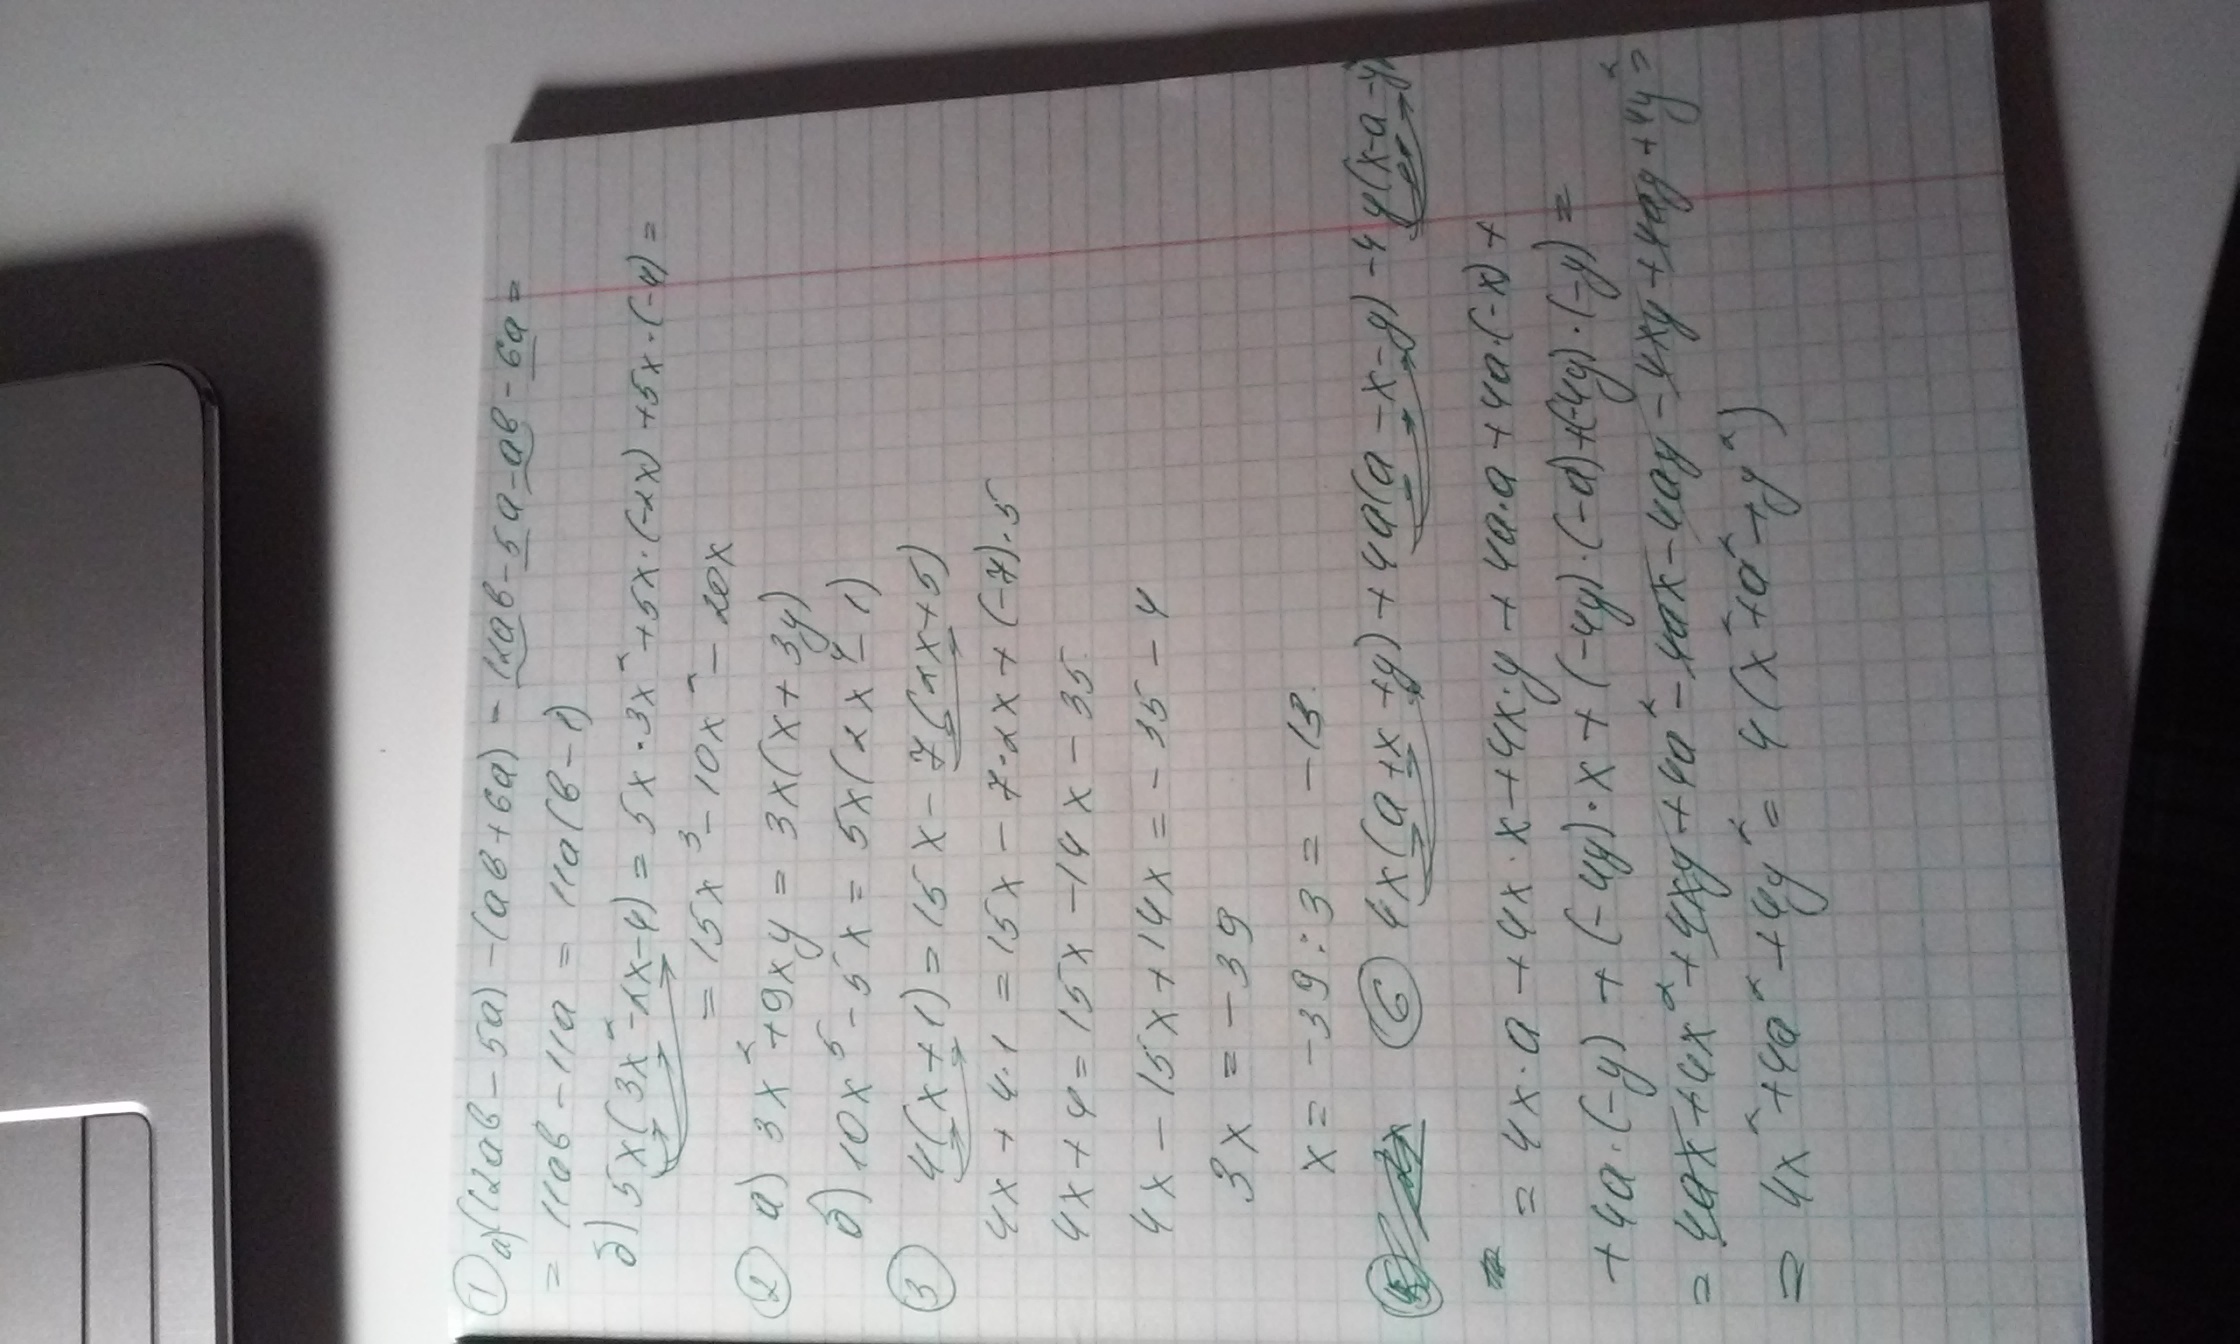 ① а) (12ав - 5а) - (ав + 6а) = 12ав - 5а - ав - 6а =
= 11ав - 11а = 11а(в - 1)
б) 5x(3x² - 2x - 4) = 5x · 3x² + 5x · (-2x) + 5x · (-4) =
= 15x³ - 10x² - 20x
② а) 3x² + 9xy = 3x(x + 3y)
б) 10x⁵ - 5x = 5x(2x⁴ - 1)
③ 4(x + 1) = 15x - 7(2x + 5)
4x + 4 · 1 = 15x - 7 · 2x + (-7) · 5
4x + 4 = 15x - 14x - 35
4x - 15x + 14x = - 35 - 4
3x = - 39
x = - 39 : 3 = - 13
⑥ 4x(a + x + y) + 4a(a - x - y) - 4y(x - a - y)
= 4x · a + 4x · x + 4x · y + 4a · a + 4a · (-x) +
+ 4a · (-y) + (-4y) · x + (-4y) · (-a) + (-4y) · (-y) =
= 4ax + 4x² + 4xy + 4a² - 4ax - 4ay - 4xy + 4ay + 4y² =
= 4x² + 4a² + 4y² = 4(x² + a² + y²)